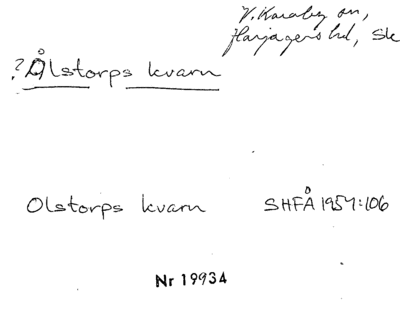 V. Karaby sn,
Harjagers hd, Sk
? Ålstorps kvarn
Olstorps kvarn SHFÅ 1957:106
Nr 19934